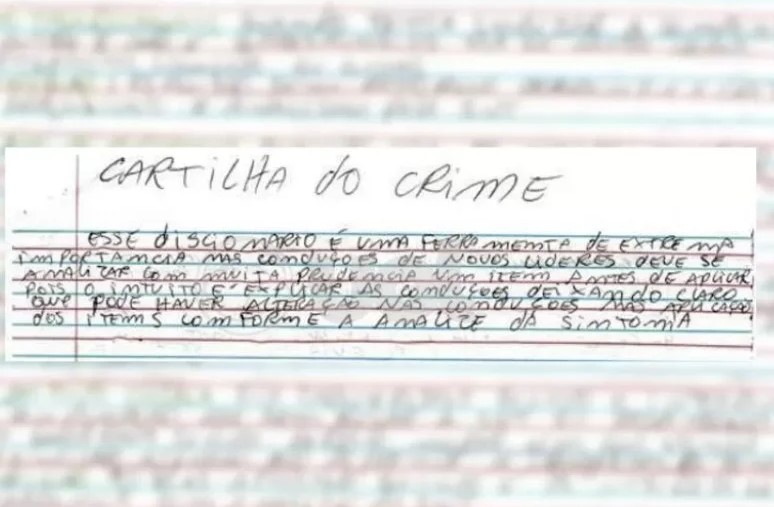 CARTILHA DO CRIME
ESSE DISCIONARIO É UMA FERRAMEMTA DE EXTREMA
IMPORTAMCIA NAS COMDUÇOES DE NOVOS LIDERES DEVE SE
AMALIZAR COM MUITA PRUDEMCIA UM ITEM AMTES DE APLICAR
POIS O IMTUITO É EXPLICAR AS COMDUÇOES DEIXAMDO CLARO
QUE PODE HAVER ALTERAÇÃO NAS COMDUÇOES NAS APLICAÇÃO
DOS ITEMS COMFORME A AMALIZE DA SIMTOMIA